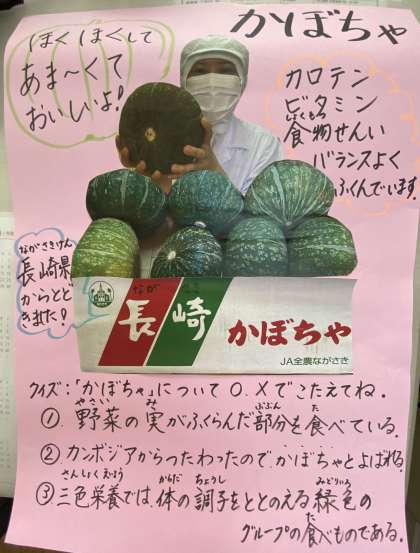 かぼちゃ
ほくほくして
あま〜くて
おいしいよ!
カロテン
ビタミン
しょくもつ
食物せんい
バランスよく
ふくんでいます。
ながさきけん
長崎県
からとど
きました!
なが さき
長崎 かぼちゃ
JA全農ながさき
クイズ:「かぼちゃ」について○、×でこたえてね。
やさい み ぶぶん た
①、野菜の実がふくらんだ部分を食べている。
②カンボジアからつたわったので、かぼちゃとよばれる。
さんしょくえいよう からだ ちょうし みどりいろ
③三色栄養では、体の調子をととのえる緑色の
た
グループの食べものである。